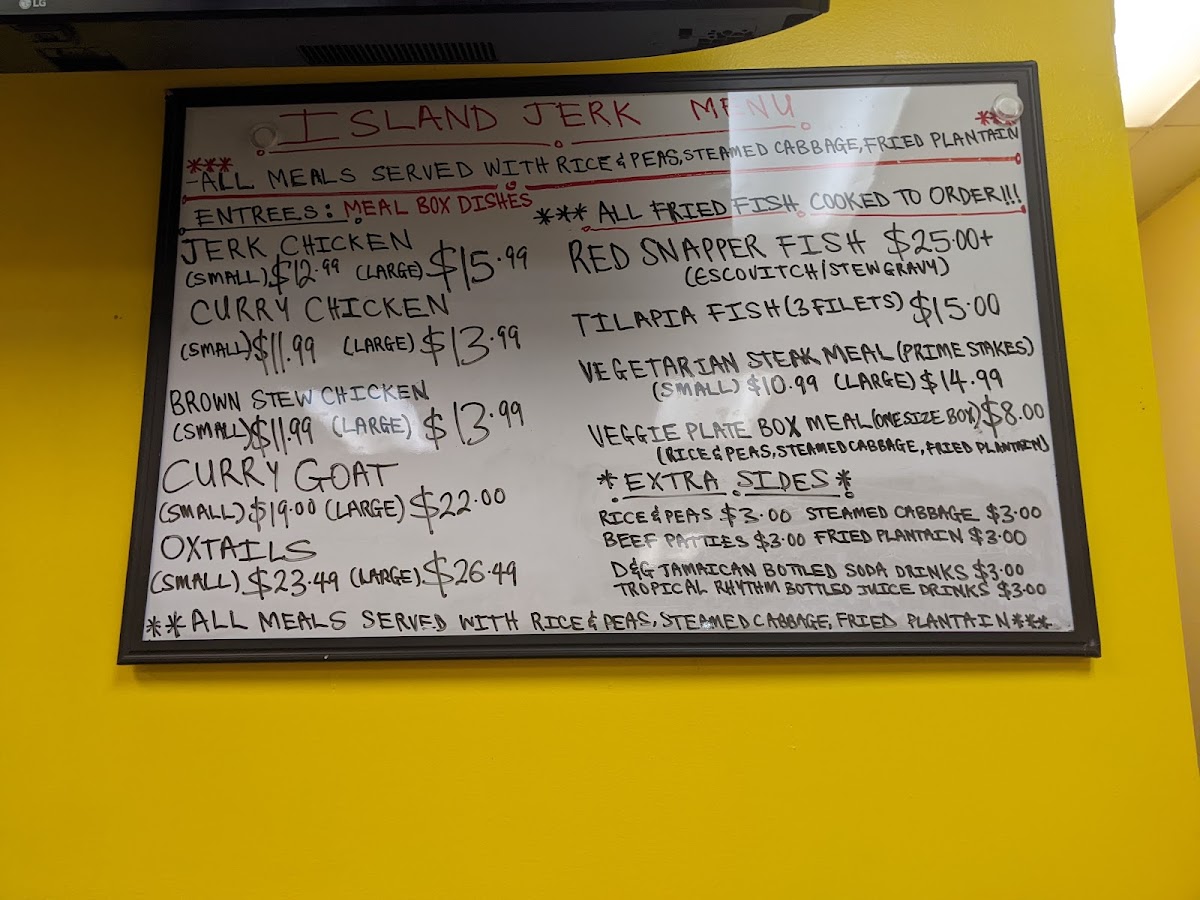 LG
ISLAND JERK MENU
***
***
-ALL MEALS SERVED WITH RICE & PEAS, STEAMED CABBAGE, FRIED PLANTAIN
ENTREES: MEAL BOX DISHES
JERK CHICKEN
(SMALL) $12.99 (LARGE) $15.99
CURRY CHICKEN
(SMALL) $11.99 (LARGE) $13.99
BROWN STEW CHICKEN
(SMALL) $11.99 (LARGE) $13.99
CURRY GOAT
(SMALL) $19.00 (LARGE) $22.00
OXTAILS
(SMALL) $23.49 (LARGE) $26.49
*** ALL FRIED FISH COOKED TO ORDER!!!
RED SNAPPER FISH $25.00+
(ESCOVITCH/STEW GRAVY)
TILAPIA FISH (3 FILETS) $15.00
VEGETARIAN STEAK MEAL (PRIME STAKES)
(SMALL) $10.99 (LARGE) $14.99
VEGGIE PLATE BOX MEAL (ONE SIZE BOX) $8.00
(RICE & PEAS, STEAMED CABBAGE, FRIED PLANTAIN)
* EXTRA SIDES *
RICE & PEAS $3.00 STEAMED CABBAGE $3.00
BEEF PATTIES $3.00 FRIED PLANTAIN $3.00
D&G JAMAICAN BOTTLED SODA DRINKS $3.00
TROPICAL RHYTHM BOTTLED JUICE DRINKS $3.00
**ALL MEALS SERVED WITH RICE & PEAS, STEAMED CABBAGE, FRIED PLANTAIN***